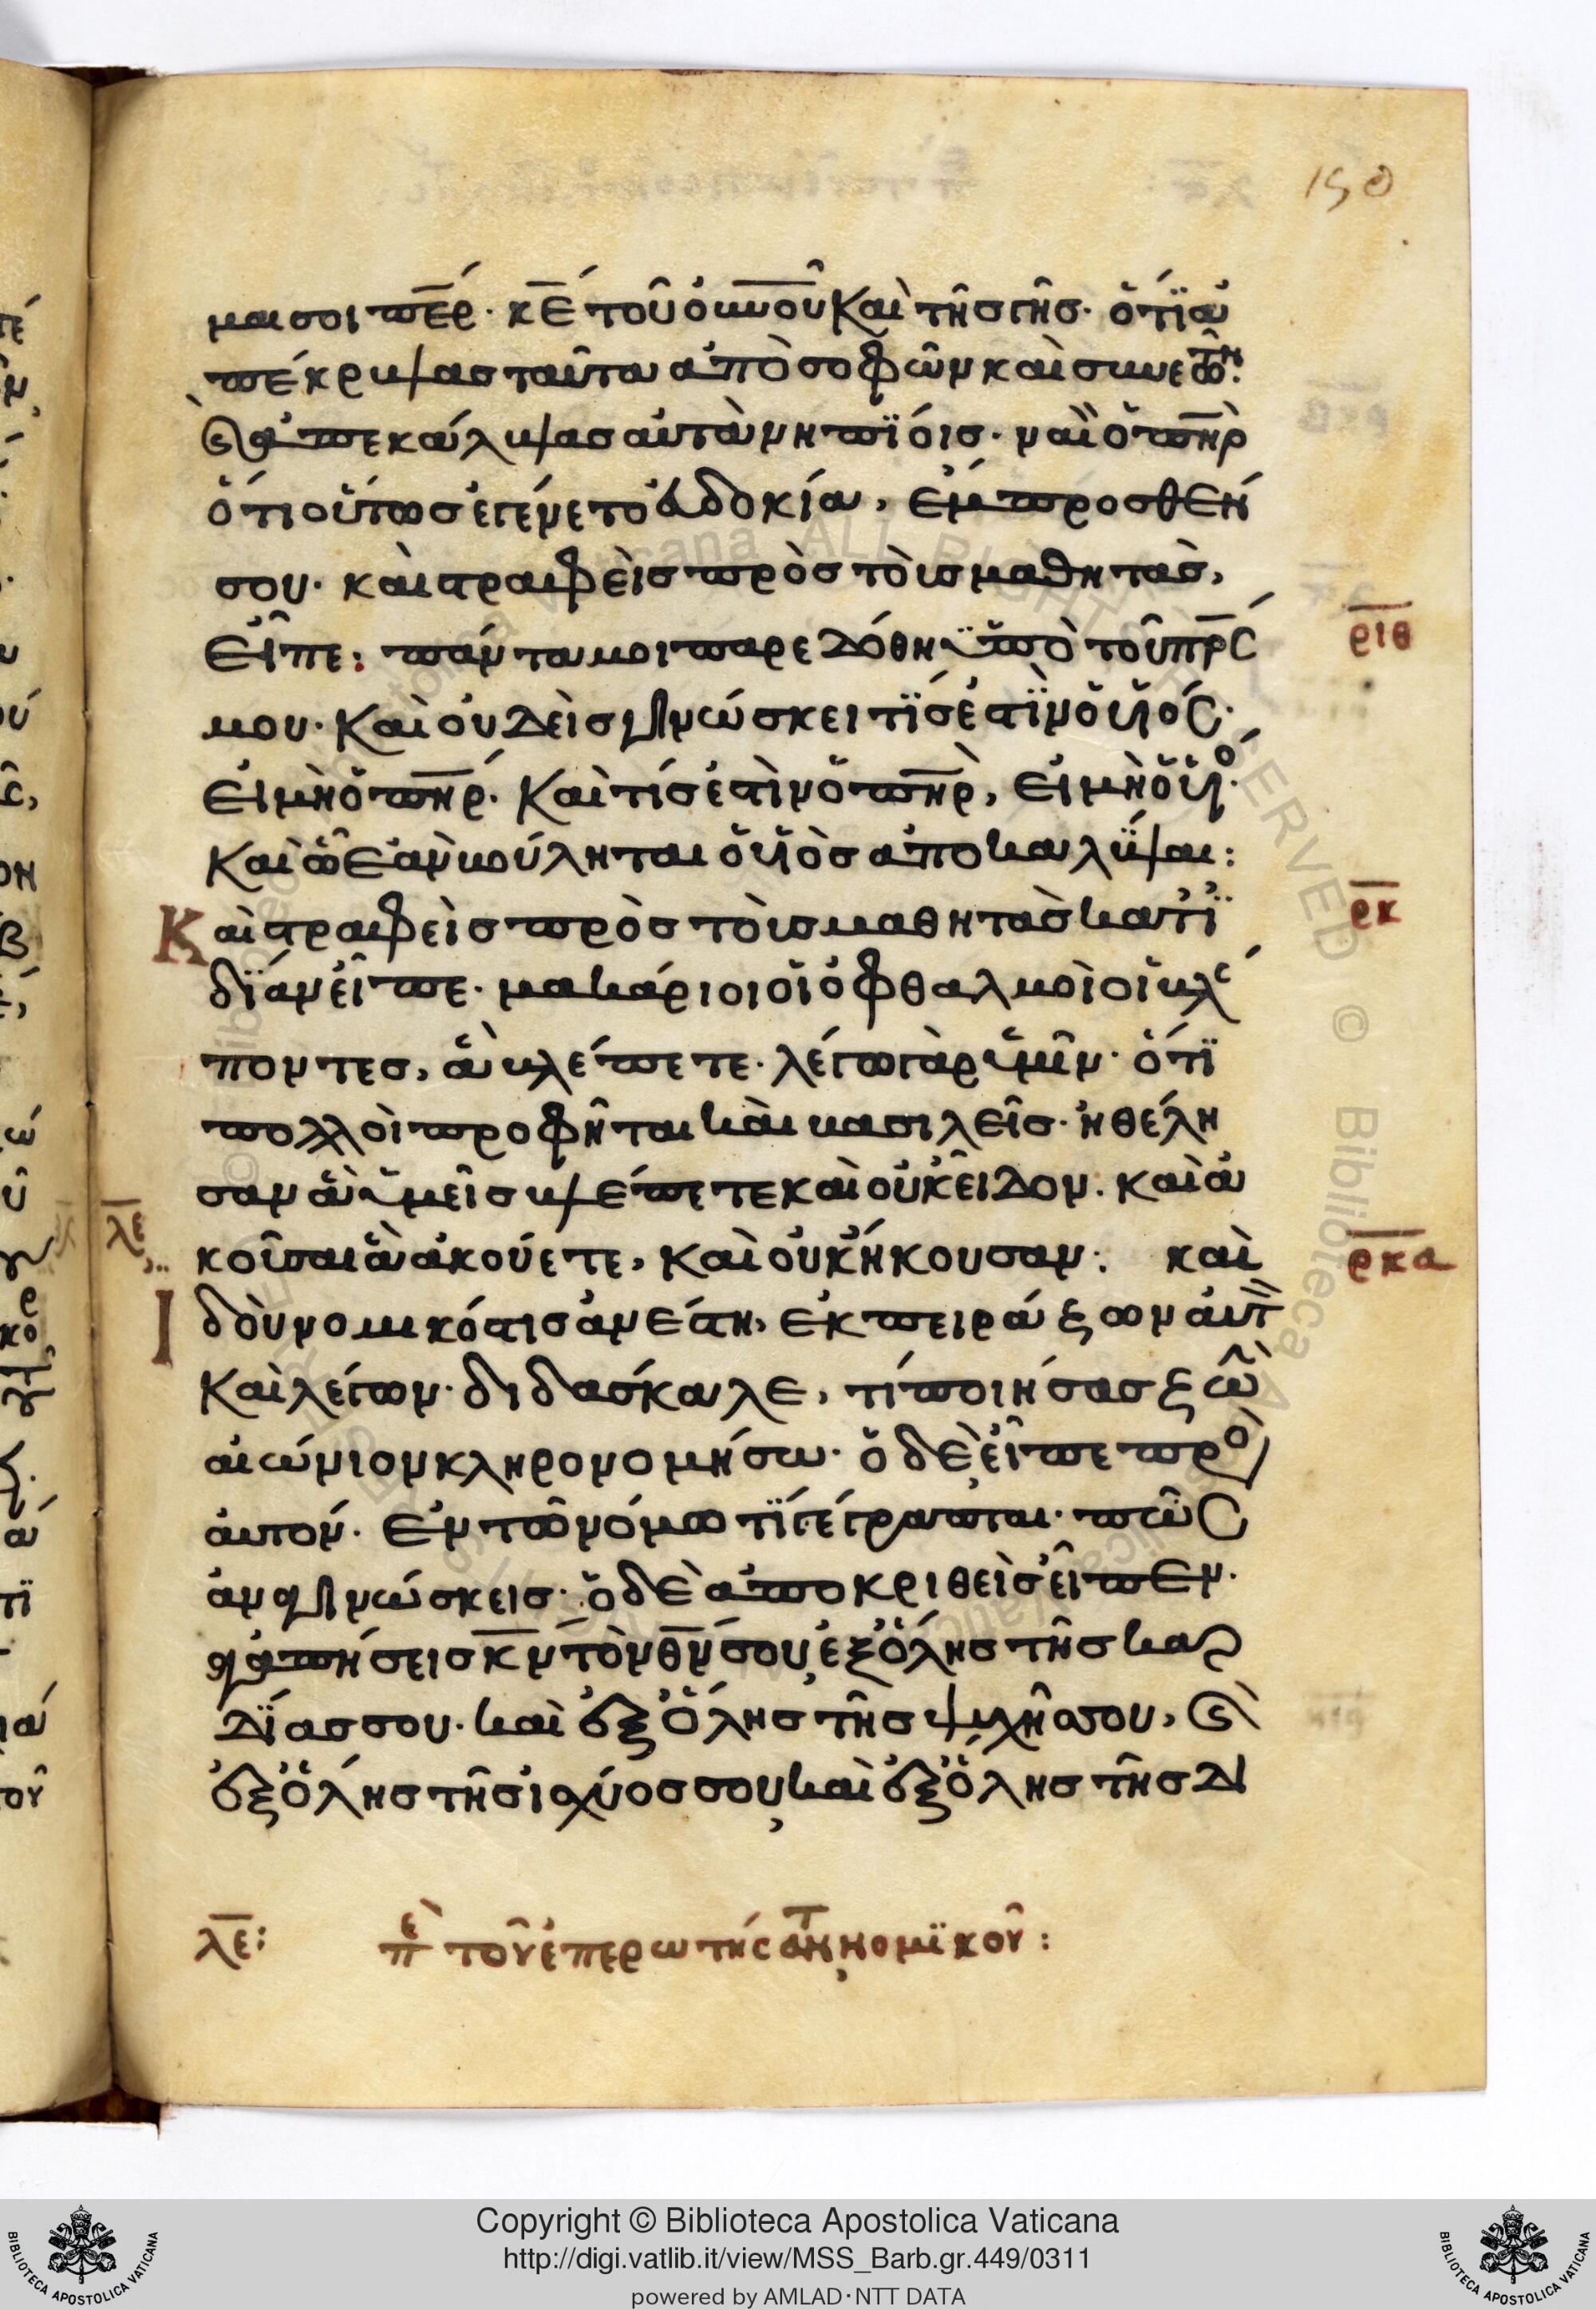 150
μαι σοι πε̄ρ· κε̄ τοῦ οὐνοῦ καὶ τῆς γῆς· ὅτι ἀ
πέκρυψας ταῦτα ἀπὸ σοφῶν καὶ συνετῶν·
καὶ ἀπεκάλυψας αὐτὰ νηπίοις· ναὶ ὁ πη̄ρ
ὅτι οὕτως ἐγένετο εὐδοκία, ἔμπροσθέν
σου· καὶ στραφεὶς πρὸς τοὺς μαθητὰς,
εἶπε: πάντα μοι παρεδόθη ὑπὸ τοῦ πρ̄ς
ριθ
μου· καὶ οὐδεὶς γινώσκει τίς ἐστιν ὁ υἱός·
εἰ μὴ ὁ πη̄ρ· καὶ τίς ἐστὶν ὁ πη̄ρ, εἰ μὴ ὁ υἱό·
καὶ ᾧ ἐὰν βούληται ὁ υἱὸς ἀποκαλύψαι:
Καὶ στραφεὶς πρὸς τοὺς μαθητὰς κατ ἰ
ρκ
δίαν εἶπε· μακάριοι οἱ ὀφθαλμοὶ οἱ βλέ
ποντες, ἃ βλέπετε· λέγω γὰρ ὑμῖν· ὅτι
πολλοὶ προφῆται καὶ βασιλεῖς· ἠθέλη
σαν ἃ ὑμεῖς βλέπετε καὶ οὐκ εἶδον· καὶ ἀ
λε
κοῦσαι ἃ ἀκούετε, καὶ οὐκ ἤκουσαν: καὶ
ρκα
Ἰδοὺ νομικός τις ἀνέστη, ἐκπειράζων αὐτ
καὶ λέγων· διδάσκαλε, τί ποιήσας ζωὴ
αἰώνιον κληρονομήσω· ὁ δὲ εἶπε προ
αὐτόν· ἐν τῶ νόμω τί γέγραπται· πῶς
ἀναγινώσκεις· ὁ δὲ ἀποκριθεὶς εἶπεν·
ἀγαπήσεις κ̄ν τὸν θ̄ν σου, ἐξ ὅλης τῆς καρ
δίας σου· καὶ ἐξ ὅλης τῆς ψυχῆς σου, καὶ
ἐξ ὅλης τῆς ἰσχύος σου, καὶ ἐξ ὅλης τῆς δι
λε: πε τοῦ ἐπερωτήσαντ νομϊκοῦ:
Copyright © Biblioteca Apostolica Vaticana
http://digi.vatlib.it/view/MSS_Barb.gr.449/0311
powered by AMLAD·NTT DATA
BIBLIOTECA APOSTOLICA VATICANA
BIBLIOTECA APOSTOLICA VATICANA